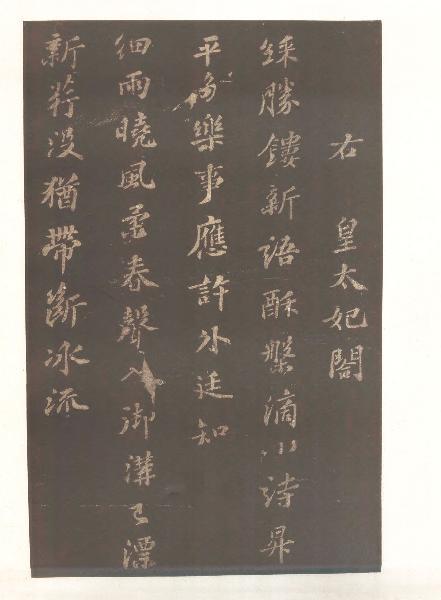 右 皇太妃閤
綵勝鏤新語酥槃滴小詩昇
平多樂事應許外廷知
細雨曉風柔春聲入御溝已漂
新荇没猶帶斷冰流